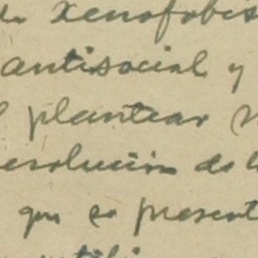 de xenofobis
antisocial y
plantear
esolución de l
que se present